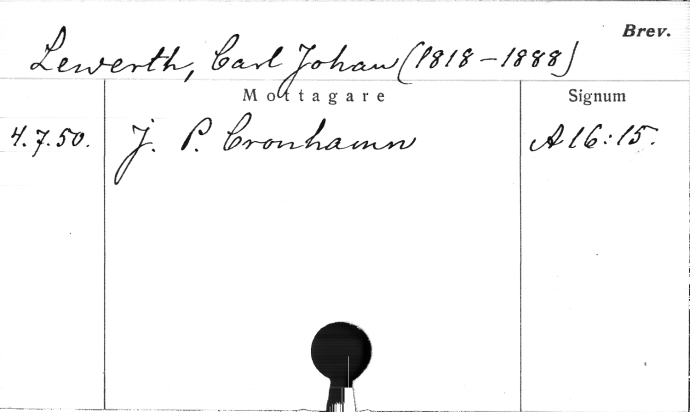 Brev.
Lewerth, Carl Johan (1818-1888)
Mottagare Signum
4.7.50. J. P. Cronhamn A16:15.